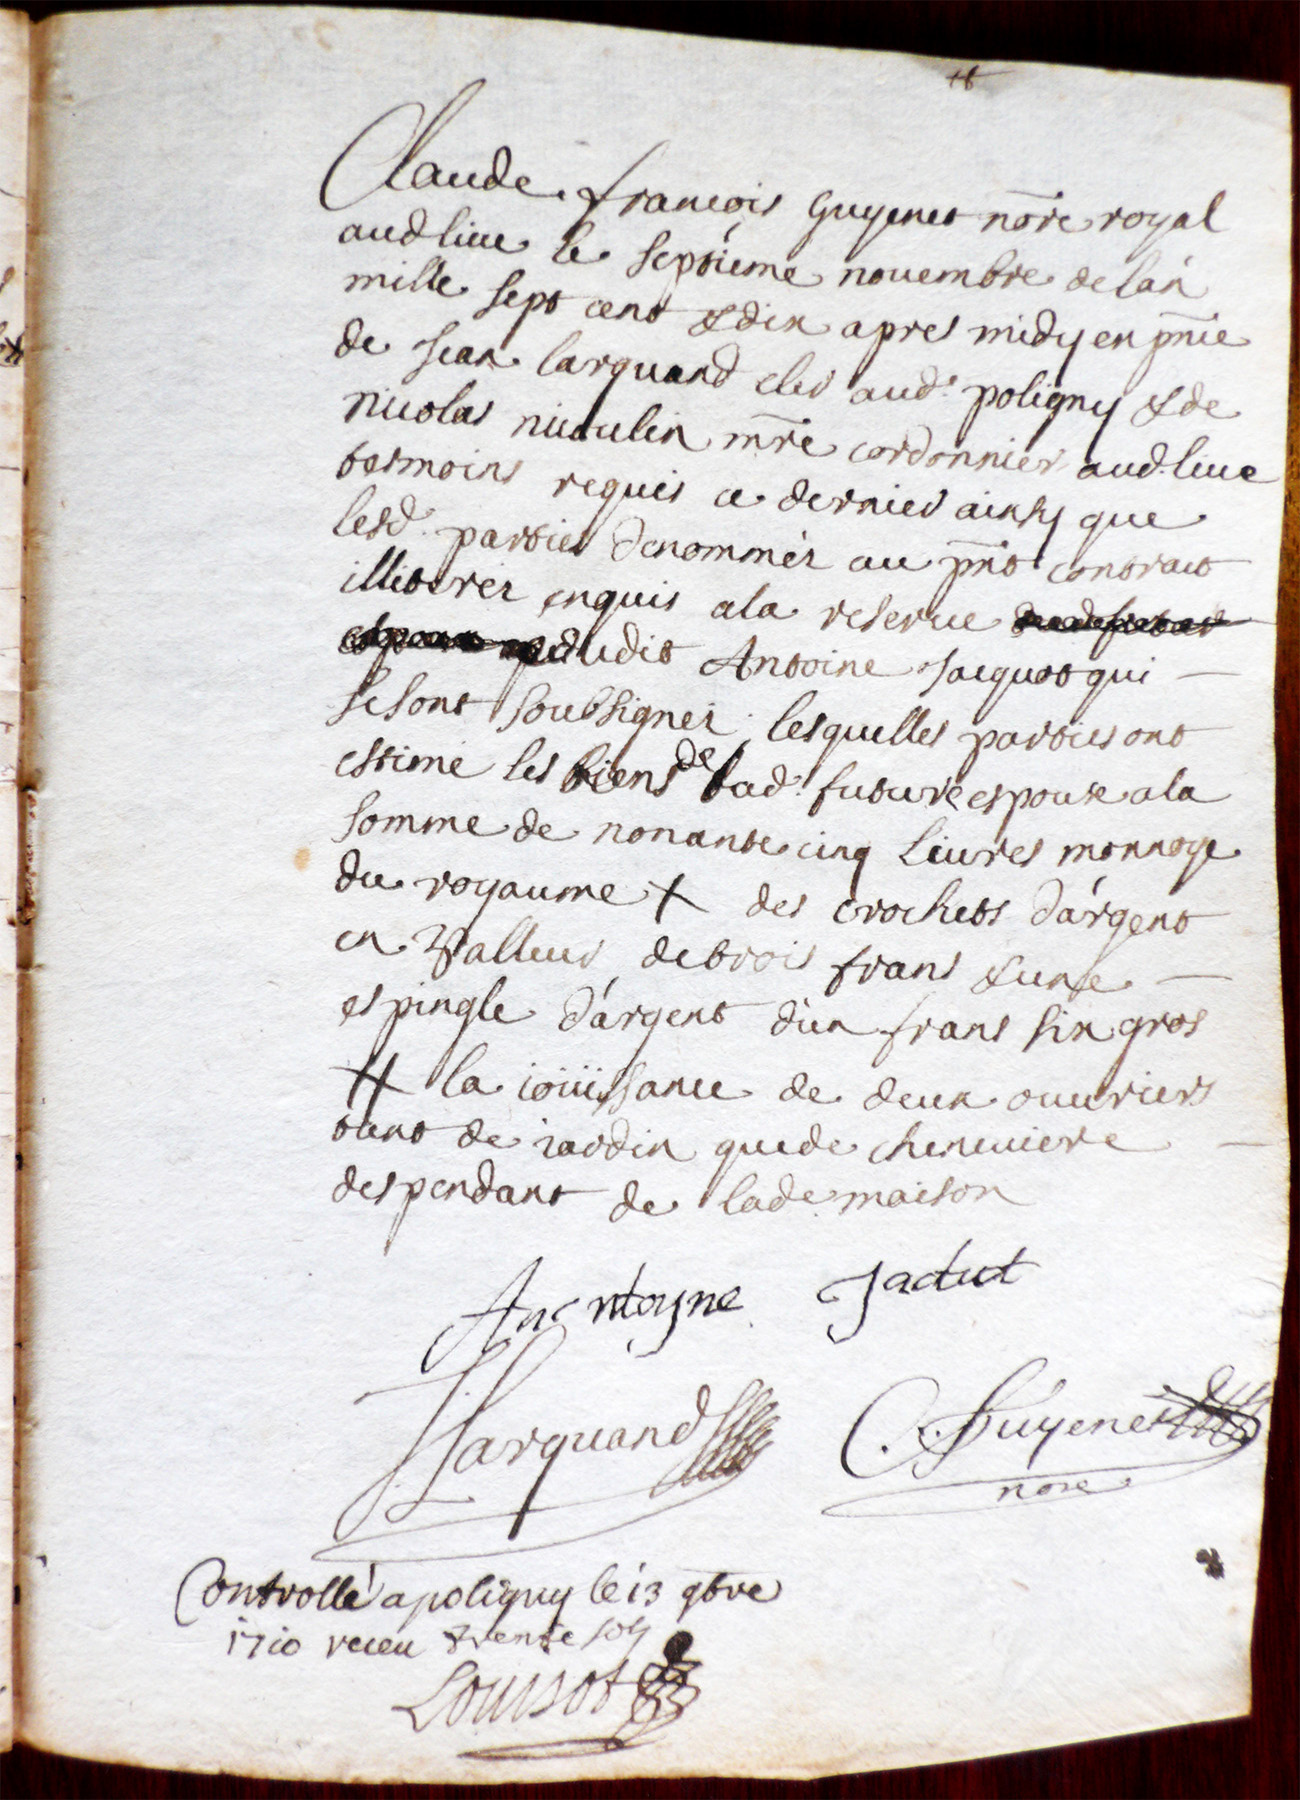 Claude francois Guyenet nōre royal
aud lieu le septieme novembre de lan
mille sept cent & dix apres midy en pn̄ce
de Jean Larquand clerc aud. poligny & de
nicolas nicoulin mr̄e cordonnier aud. lieu
tesmoins requis ce dernier ainsy que
lesd. parties denommés au pn̄t contract
illiterez enquis a la reserve
dudit Antoine Jacquot qui —
se sont soubsignez. lesquelles parties ont
estimé les biens de lad. future espouse a la
somme de nonante cinq livres monnoye
du royaume + des crochets d'argent
en Valleur de trois frans & une —
espingle d'argent d'un frans six gros
++ la ioüissance de deux ouvriers
tant de iardin que de cheneviere —
despendant de lade. maison
Anentoyne Jactut
J Larquand
C. f. Guyenet
nore
Controllé a poligny le 13 9bre
1710 receu trente sols